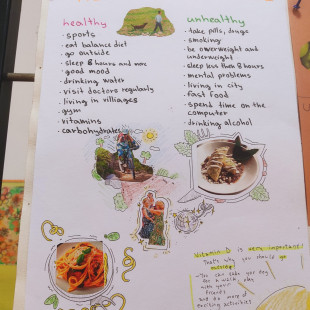 healthy
· sports
· eat balance diet
· go outside
· sleep 8 hours and more
· good mood
· drinking water
· visit doctors regularly
· living in villiages
· gym
· vitamins
· carbohydrates
unhealthy
· take pills, drugs
· smoking
· be overweight and
underweight
· sleep less then 8 hours
· mental problems
· living in city
· fast food
· spend time on the
computer
· drinking alcohol
Vitamin D is very important!
That's why you should go
outside!
- You can take your dog
for a walk, play
with your
friends
and do more of
exciting activities